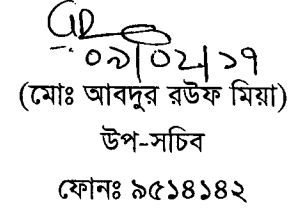 ০৯/০২/১৭
(মোঃ আবদুর রউফ মিয়া)
উপ-সচিব
ফোনঃ ৯৫১৪১৪২